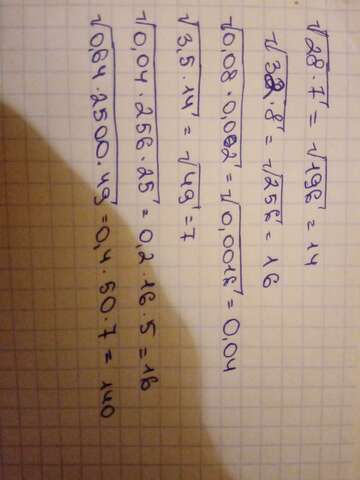 √28·7 = √196 = 14
√32·8 = √256 = 16
√0,08·0,002 = √0,0016 = 0,04
√3,5·14 = √49 = 7
√0,04·256·25 = 0,2·16·5 = 16
√0,64·2500·49 = 0,4·50·7 = 140